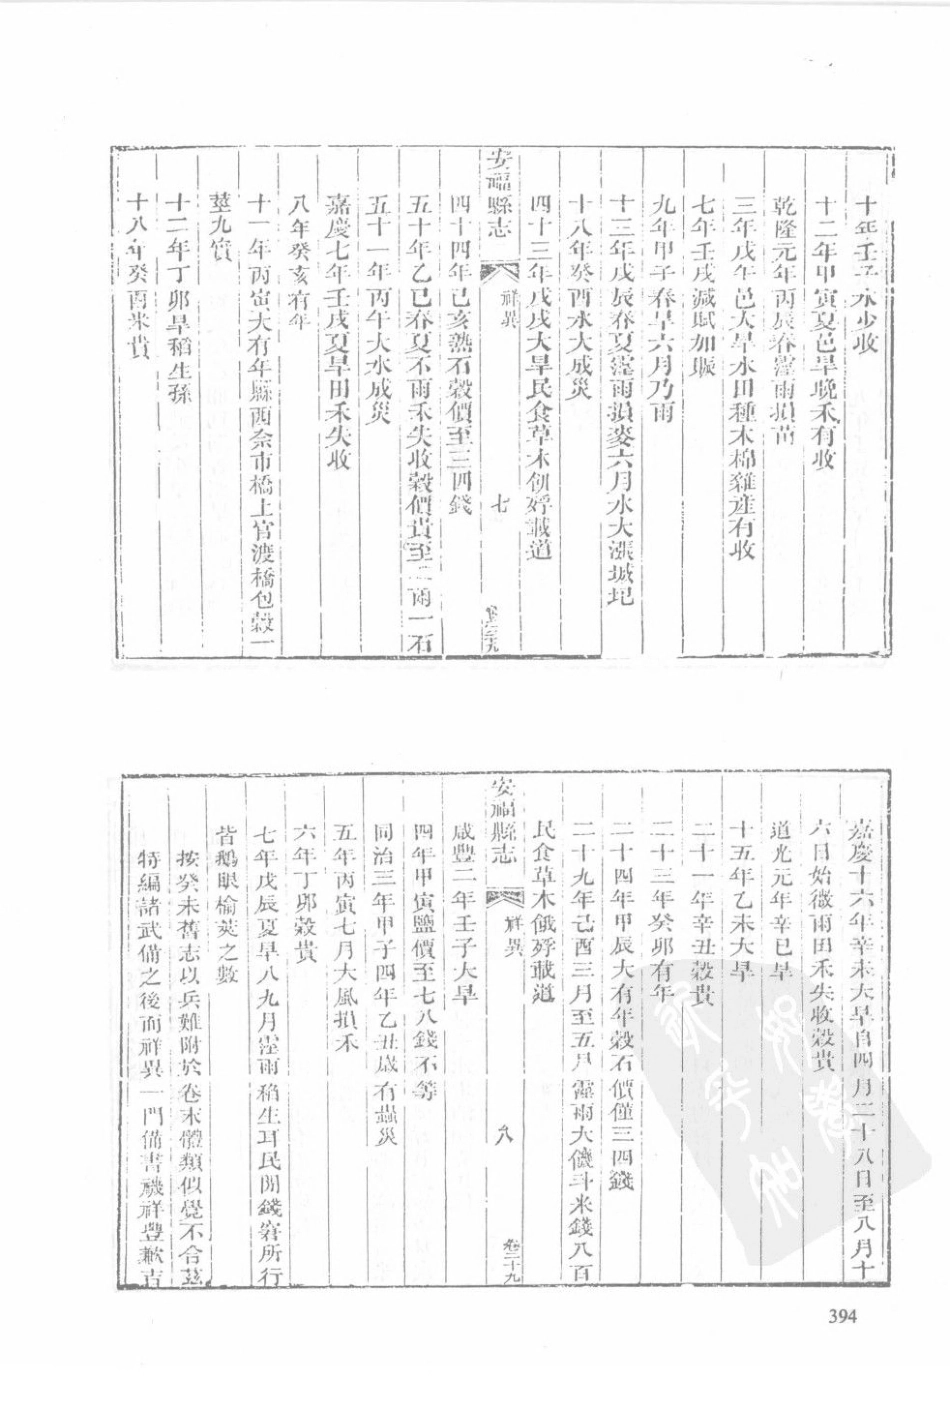 十年壬子水少收
十二年甲寅夏邑旱晚禾有收
乾隆元年丙辰春霪雨損苗
三年戊午邑大旱水田種木棉雜產有收
七年壬戌減賦加賑
九年甲子春旱六月乃雨
十三年戊辰春夏霪雨損麥六月水大漲城圮
十八年癸酉水大成災
四十三年戊戌大旱民食草木刨殍載道
安福縣志
祥異
七
卷二十九
四十四年己亥熟石穀價至三四錢
五十年乙巳春夏不雨禾失收穀價貴至二兩一石
五十一年丙午大水成災
嘉慶七年壬戌夏旱田禾失收
八年癸亥有年
十一年丙寅大有年縣西佘市橋上官渡橋包穀一
莖九實
十二年丁卯旱稻生孫
十八年癸酉米貴
嘉慶十六年辛未大旱自四月二十八日至八月十
六日始微雨田禾失收穀貴
道光元年辛巳旱
十五年乙未大旱
二十一年辛丑穀貴
二十三年癸卯有年
二十四年甲辰大有年穀石價僅三四錢
二十九年己酉三月至五月霪雨大饑斗米錢八百
民食草木餓殍載道
安福縣志
祥異
八
卷二十九
咸豐二年壬子大旱
四年甲寅鹽價至七八錢不等
同治三年甲子四年乙丑歲有蟲災
五年丙寅七月大風損禾
六年丁卯穀貴
七年戊辰夏旱八九月霪雨稻生耳民間錢窘所行
皆鵝眼榆莢之數
按癸未舊志以兵難附於卷末體類似覺不合茲
特編諸武備之後而祥異一門備書磯祥豐歉吉
394